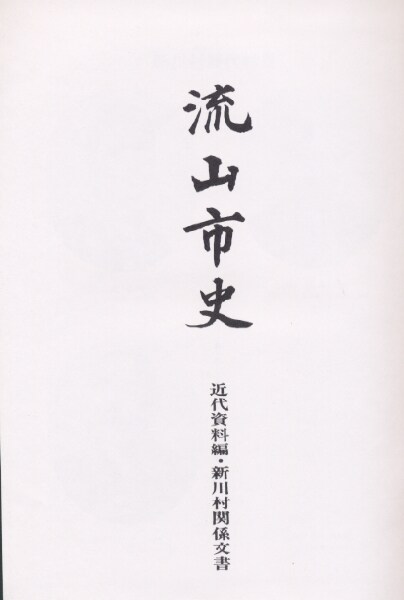 流山市史
近代資料編・新川村関係文書